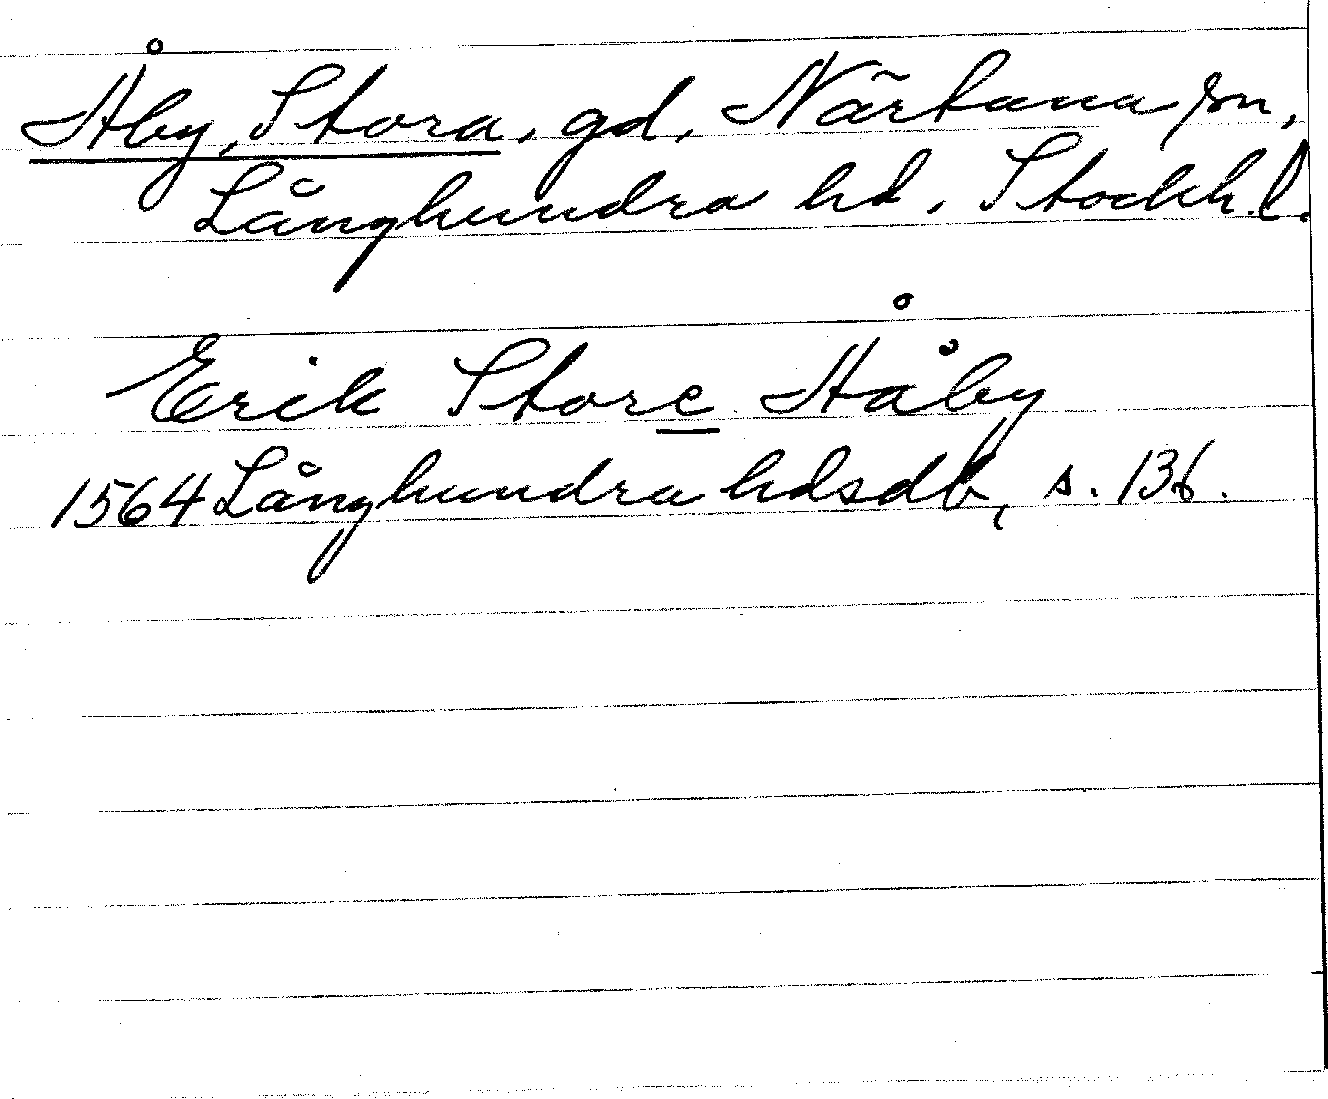 Åby, Stora, gd, Närtuna sn,
Långhundra hd, Stockh. l.
Erik Store Ååby
1564 Långhundra hdsdb, s. 136.